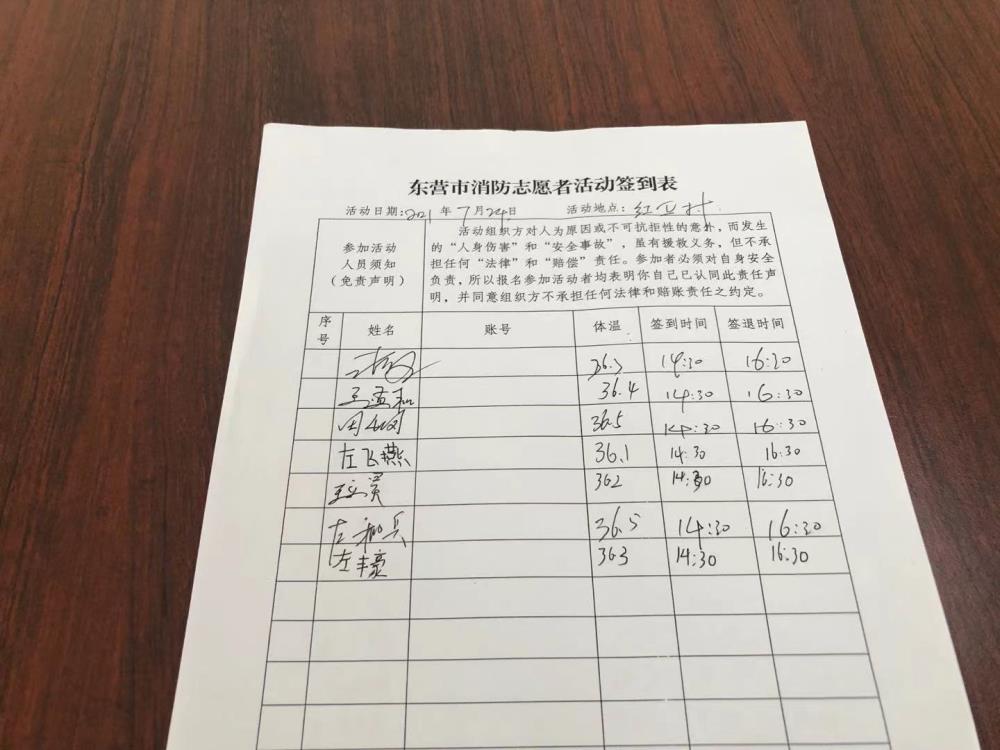 东营市消防志愿者活动签到表
活动日期:2021年7月24日 活动地点:红卫村
参加活动
人员须知
(免责声明)
活动组织方对人为原因或不可抗拒性的意外,而发生
的“人身伤害”和“安全事故”,虽有援救义务,但不承
担任何“法律”和“赔偿”责任。参加者必须对自身安全
负责,所以报名参加活动者均表明你自己已认同此责任声
明,并同意组织方不承担任何法律和赔账责任之约定。
序号 姓名 账号 体温 签到时间 签退时间
36.3 14:30 16:30
王孟和 36.4 14:30 16:30
36.5 14:30 16:30
左飞燕 36.1 14:30 16:30
362 14:30 16:30
左兵 36.5 14:30 16:30
左丰豪 363 14:30 16:30